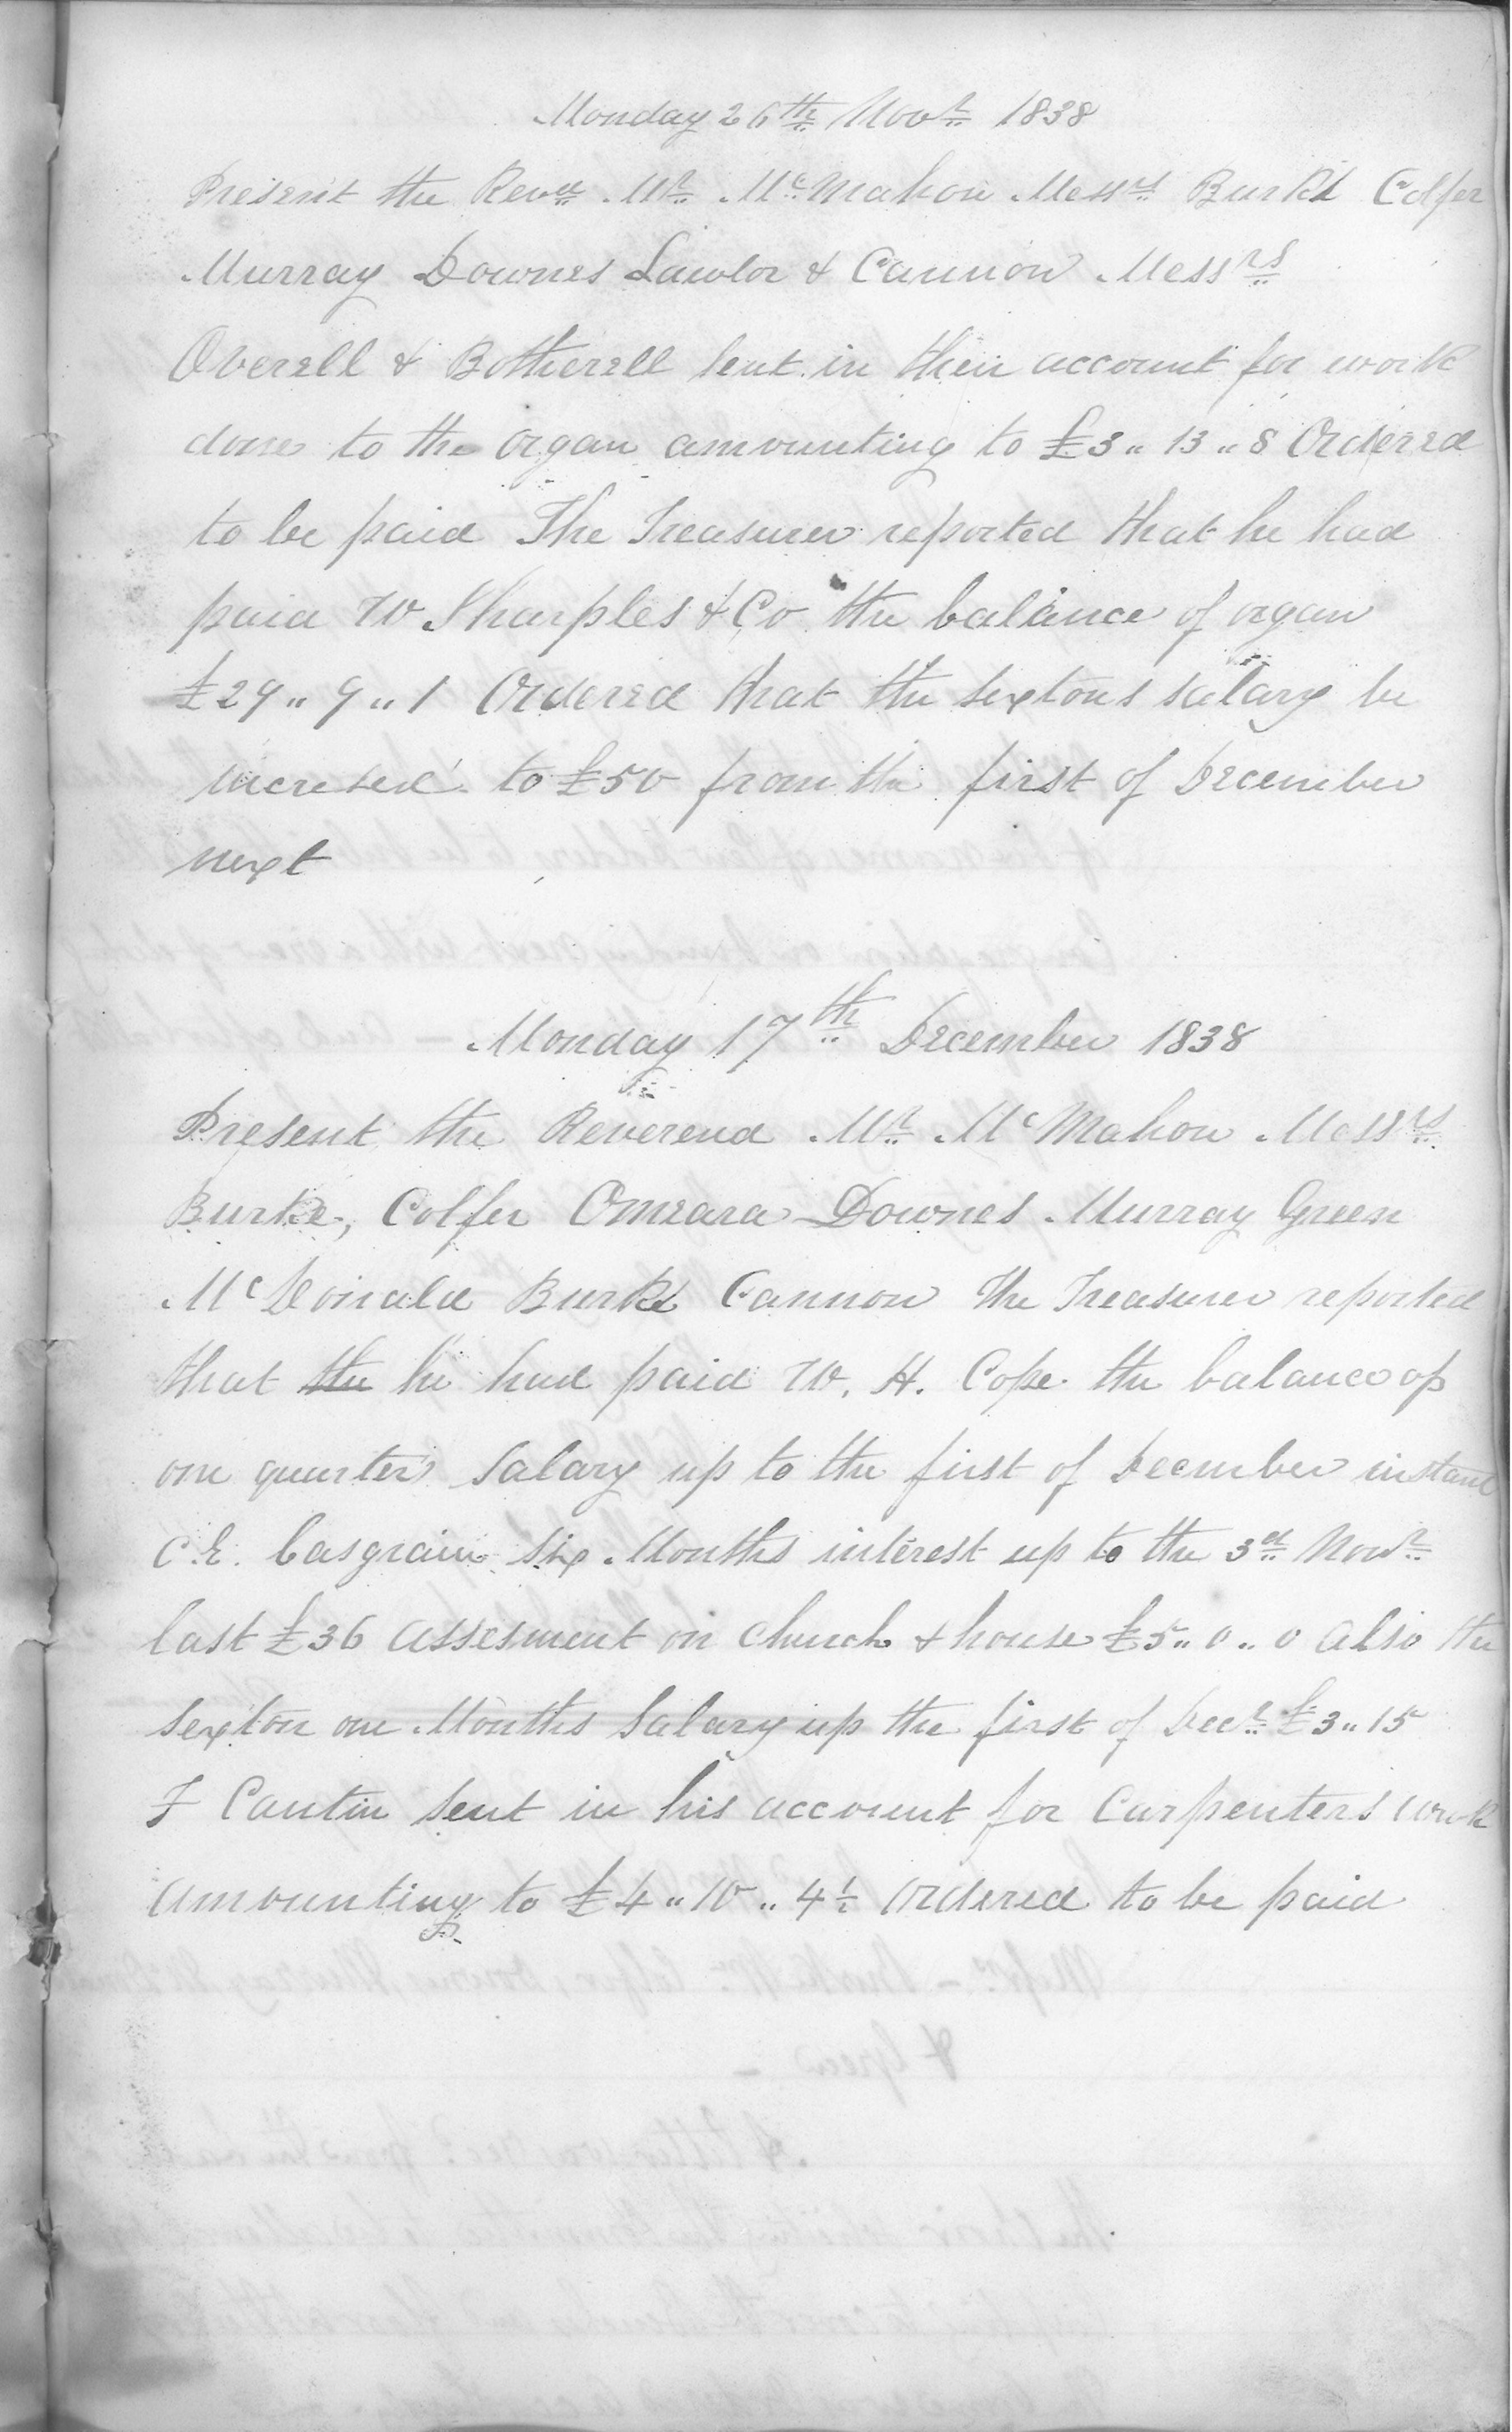 Monday 26th Novr 1838
Present the Revd Mr McMahon Messrs Burke Colfer
Murray Downes Lawlor & Cannon Messrs
Overell & Botherell sent in their account for work
done to the organ amounting to £3 " 13 " 8 Ordered
to be paid The Treasurer reported that he had
paid W Sharples & Co the balance of organ
£29 " 9 " 1 Ordered that the sextons salary be
incresed to £50 from the first of December
next
Monday 17th December 1838
Present the Reverend Mr McMahon Messrs
Burke, Colfer Omeara Downes Murray Green
McDonald Burke Cannon The Treasurer reported
that the he had paid W. H. Cope the balance of
one quarters salary up to the first of December instant
C. E. Casgrain six Months interest up to the 3d Novr
last £36 assesment on church & house £5 " 0 " 0 also the
sexton one Months Salary up the first of Decr £3 " 15
F Cantin sent in his account for Carpenters work
amounting to £4 " 10 " 4½ ordered to be paid